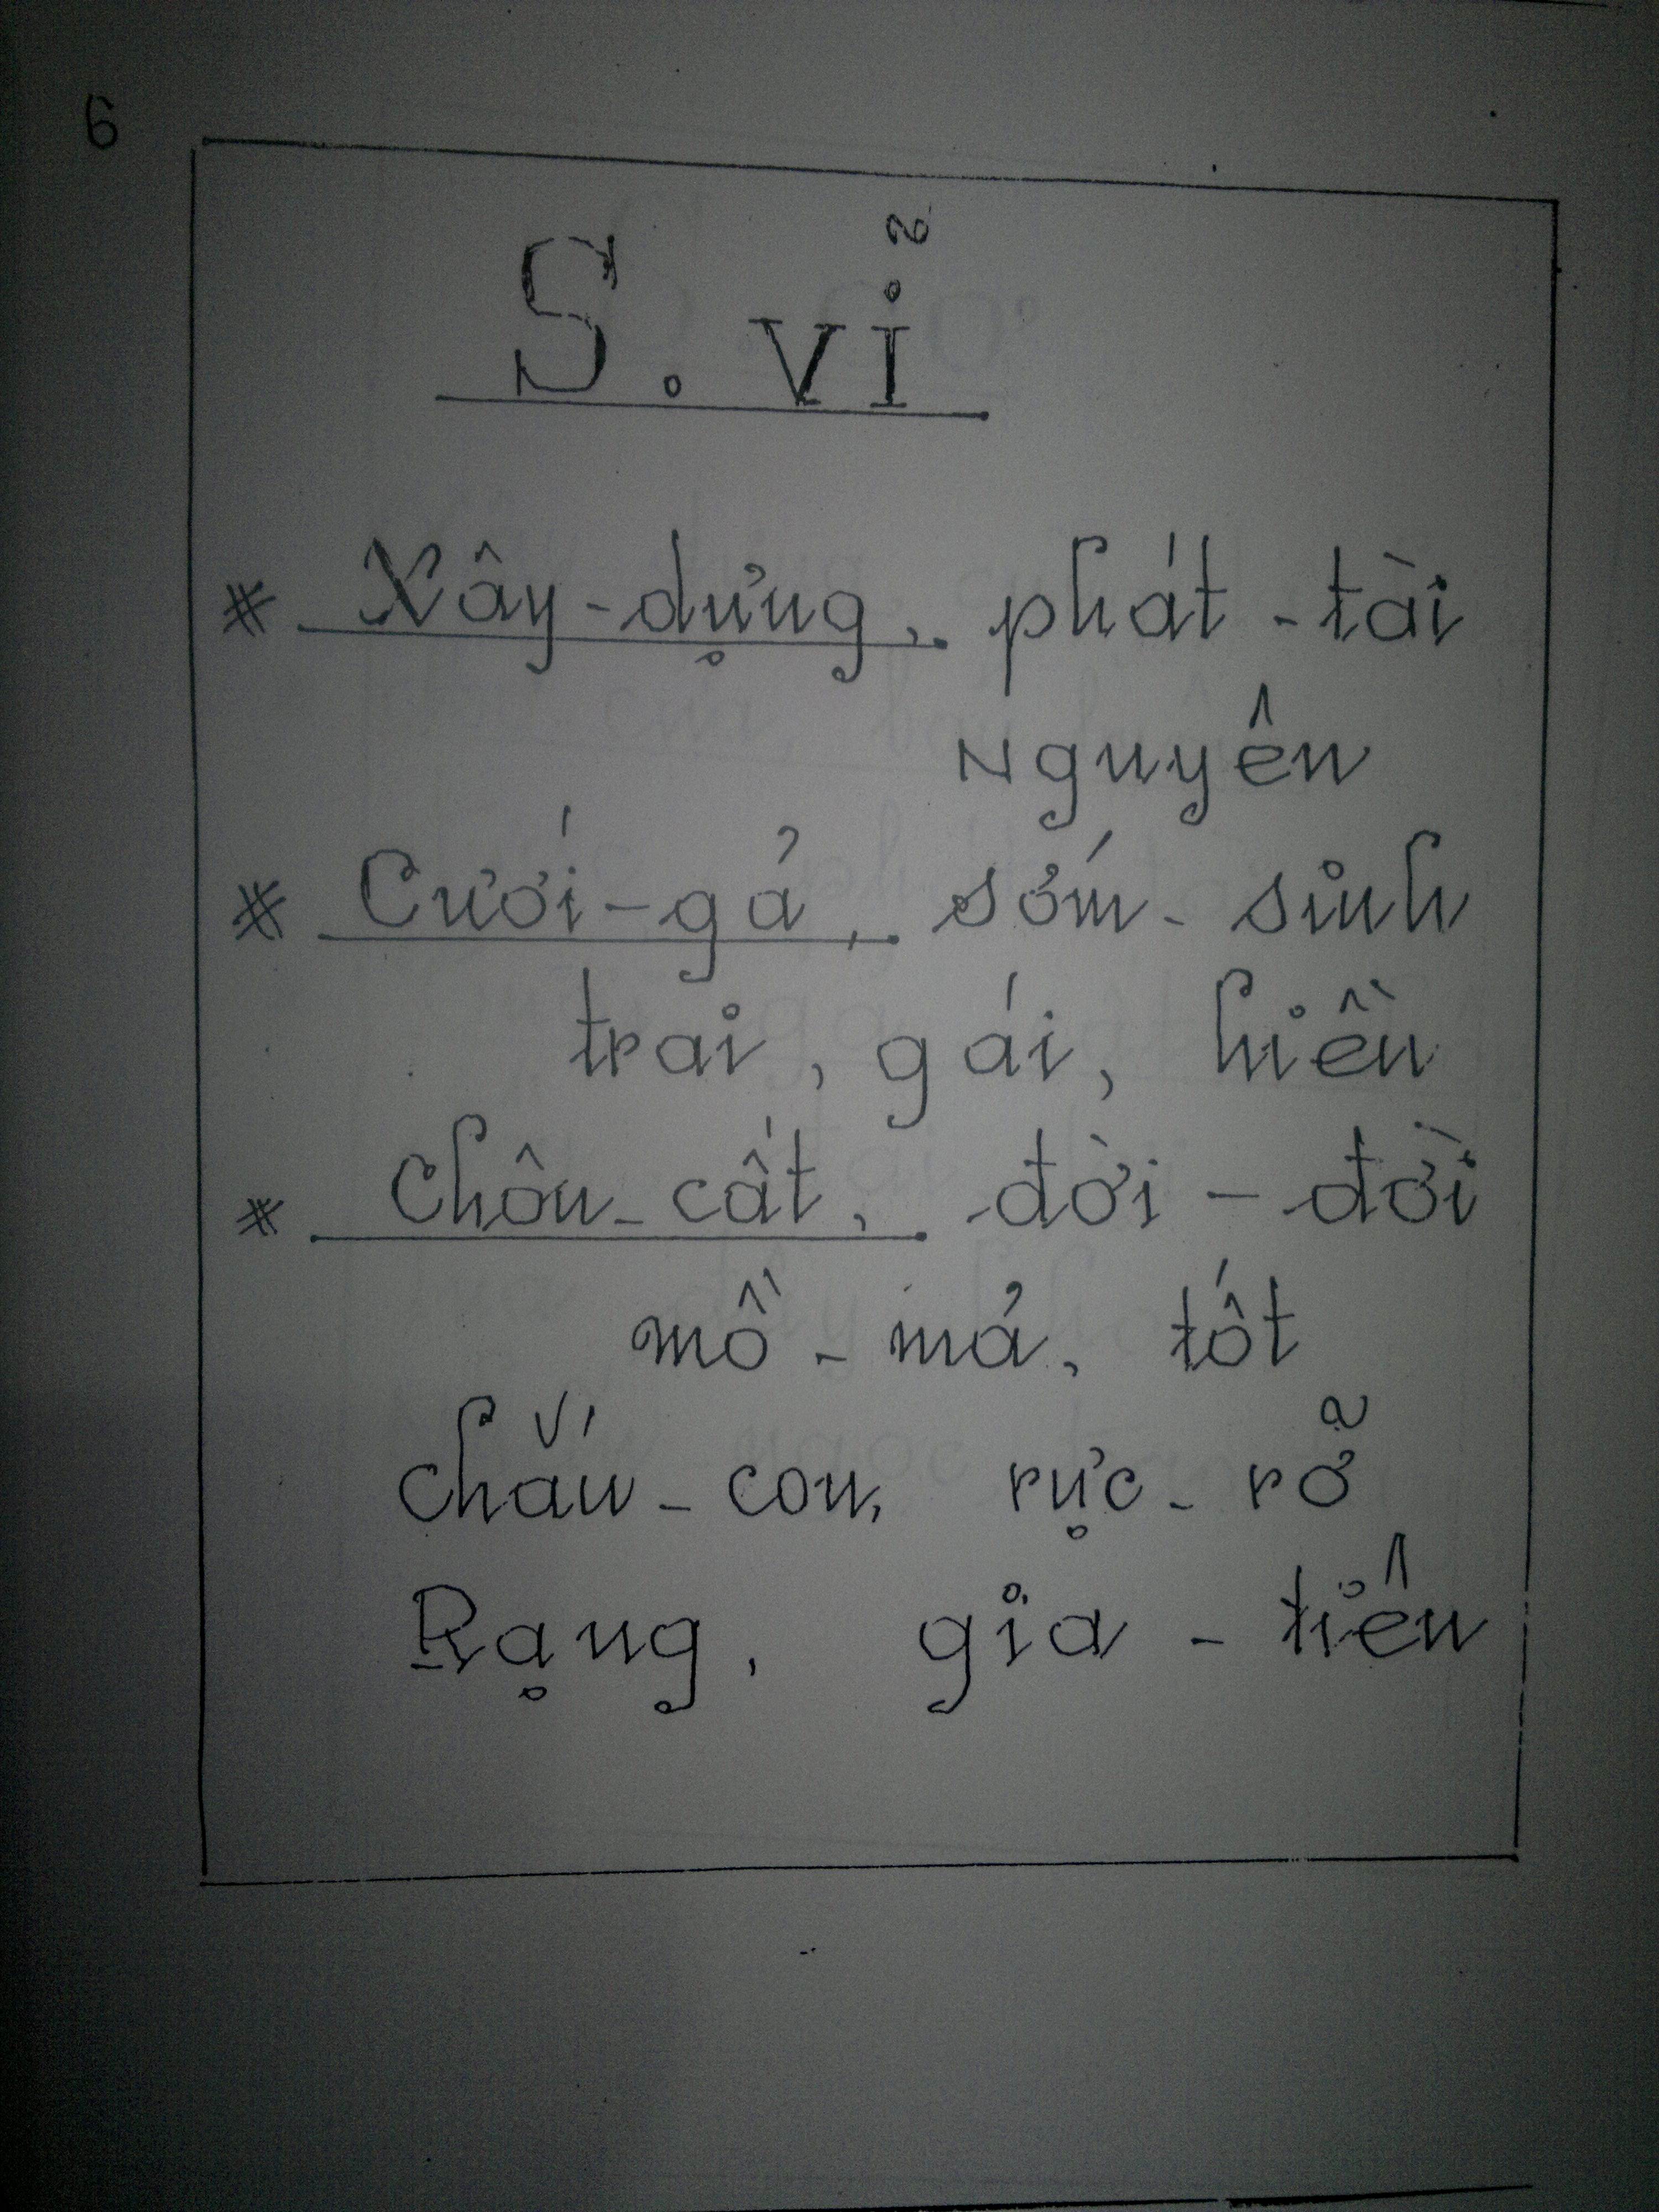 6
S. vĩ
* Xây-dựng, phát-tài
Nguyên
* Cưới-gả, sớm-sinh
trai, gái, hiền
* Chôn-cất, đời-đời
mồ-mả, tốt
chắn-con, rực-rỡ
Rạng, gia-tiên